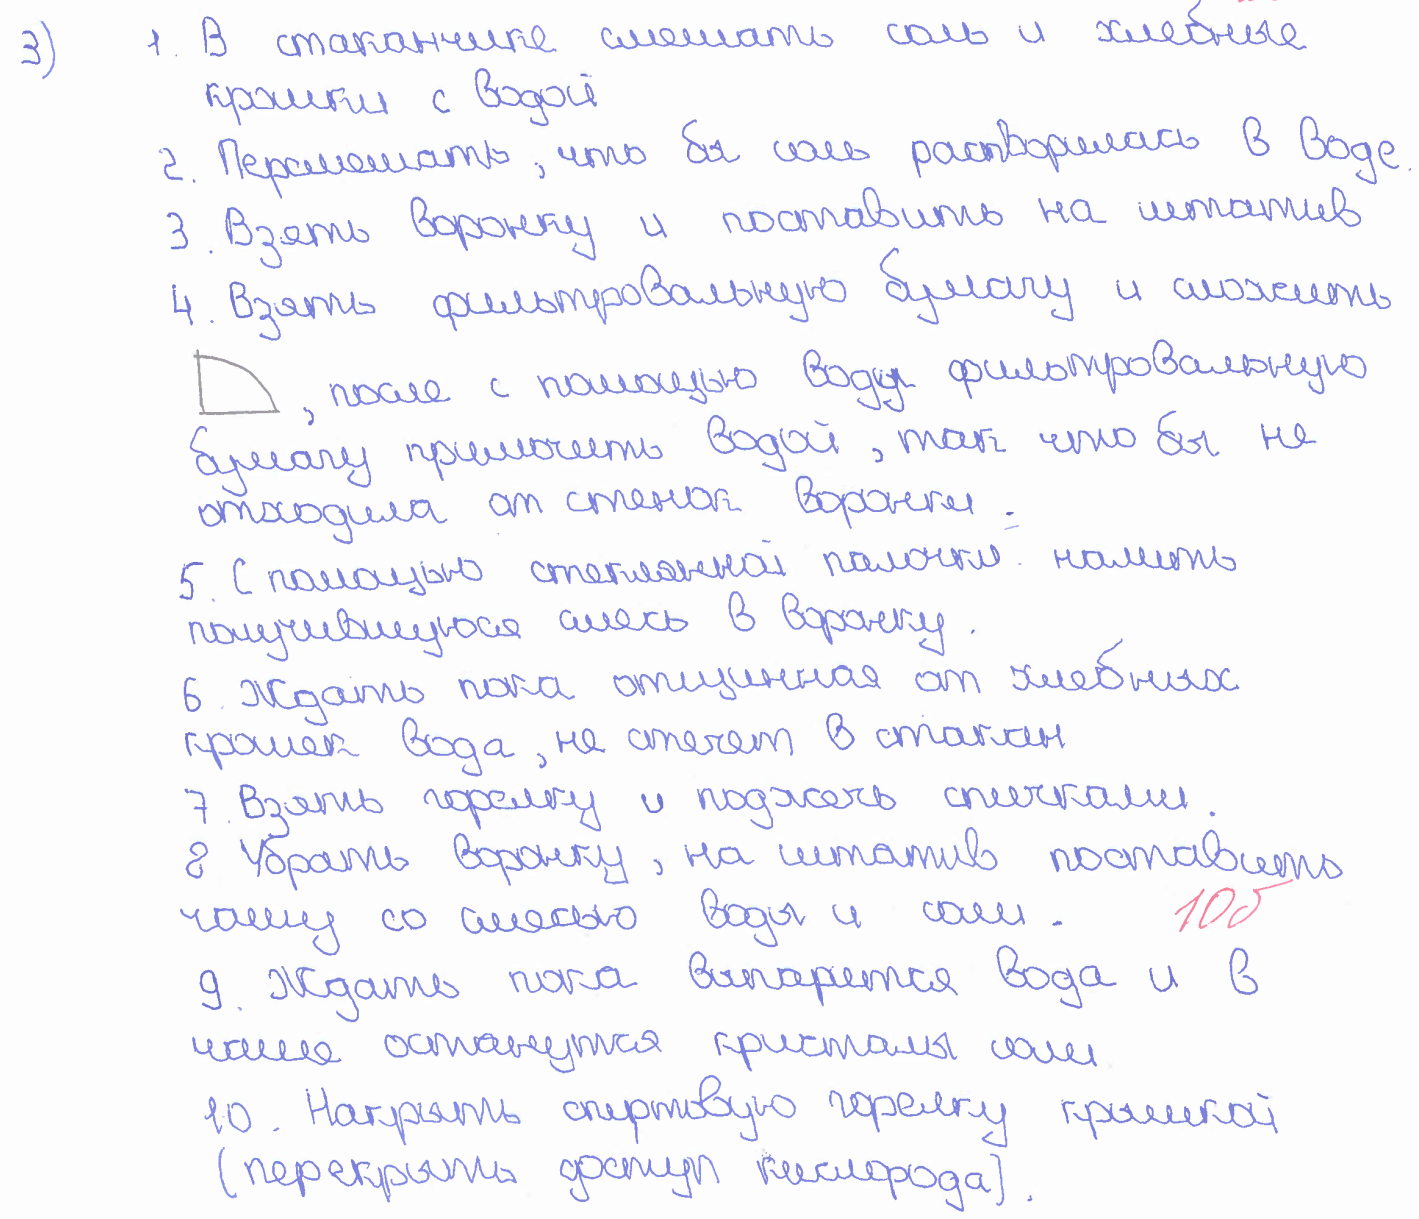 3) 1. В стаканчике смешать соль и хлебные
крошки с водой
2. Перемешать, что бы соль растворилась в воде.
3. Взять воронку и поставить на штатив
4. Взять фильтровальную бумагу и сложить
, после с помощью воды фильтровальную
бумагу примочить водой, так что бы не
отходила от стенок воронки.
5. С помощью стеклянной палочки налить
получившуюся смесь в воронку.
6. Ждать пока отщинная от хлебных
крошек вода, не стечет в стакан
7. Взять горелку и поджечь спичками.
8 Убрать воронку, на штатив поставить
чашу со смесью воды и соли.
10б
9. Ждать пока выпарется вода и в
чаше останутся кристалы соли
10. Накрыть спиртовую горелку крышкой
(перекрыть доступ кислорода).